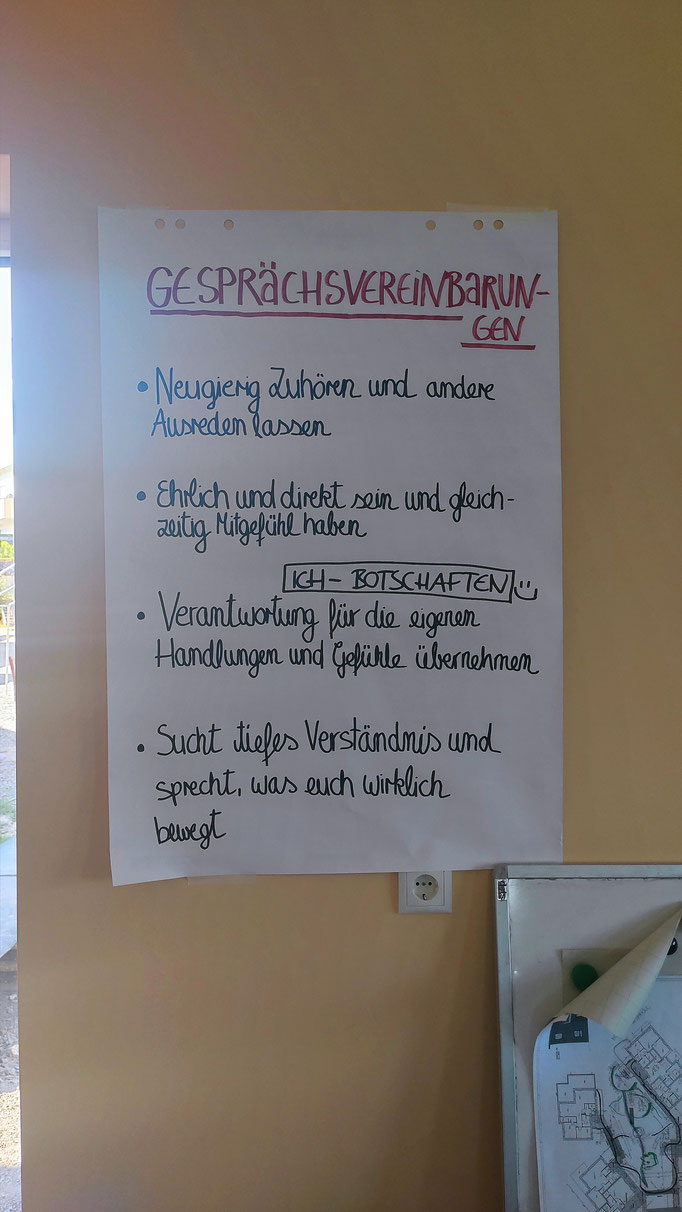 GESPRÄCHSVEREINBARUN-
GEN
• Neugierig Zuhören und andere
Ausreden lassen
• Ehrlich und direkt sein und gleich-
zeitig Mitgefühl haben
ICH - BOTSCHAFTEN
• Verantwortung für die eigenen
Handlungen und Gefühle übernehmen
• Sucht tiefes Verständnis und
sprecht, was euch wirklich
bewegt